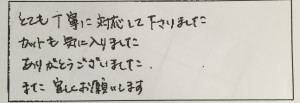 とても丁寧に対応して下さりました
カットも気に入りました
ありがとうございました.
また宜しくお願いします